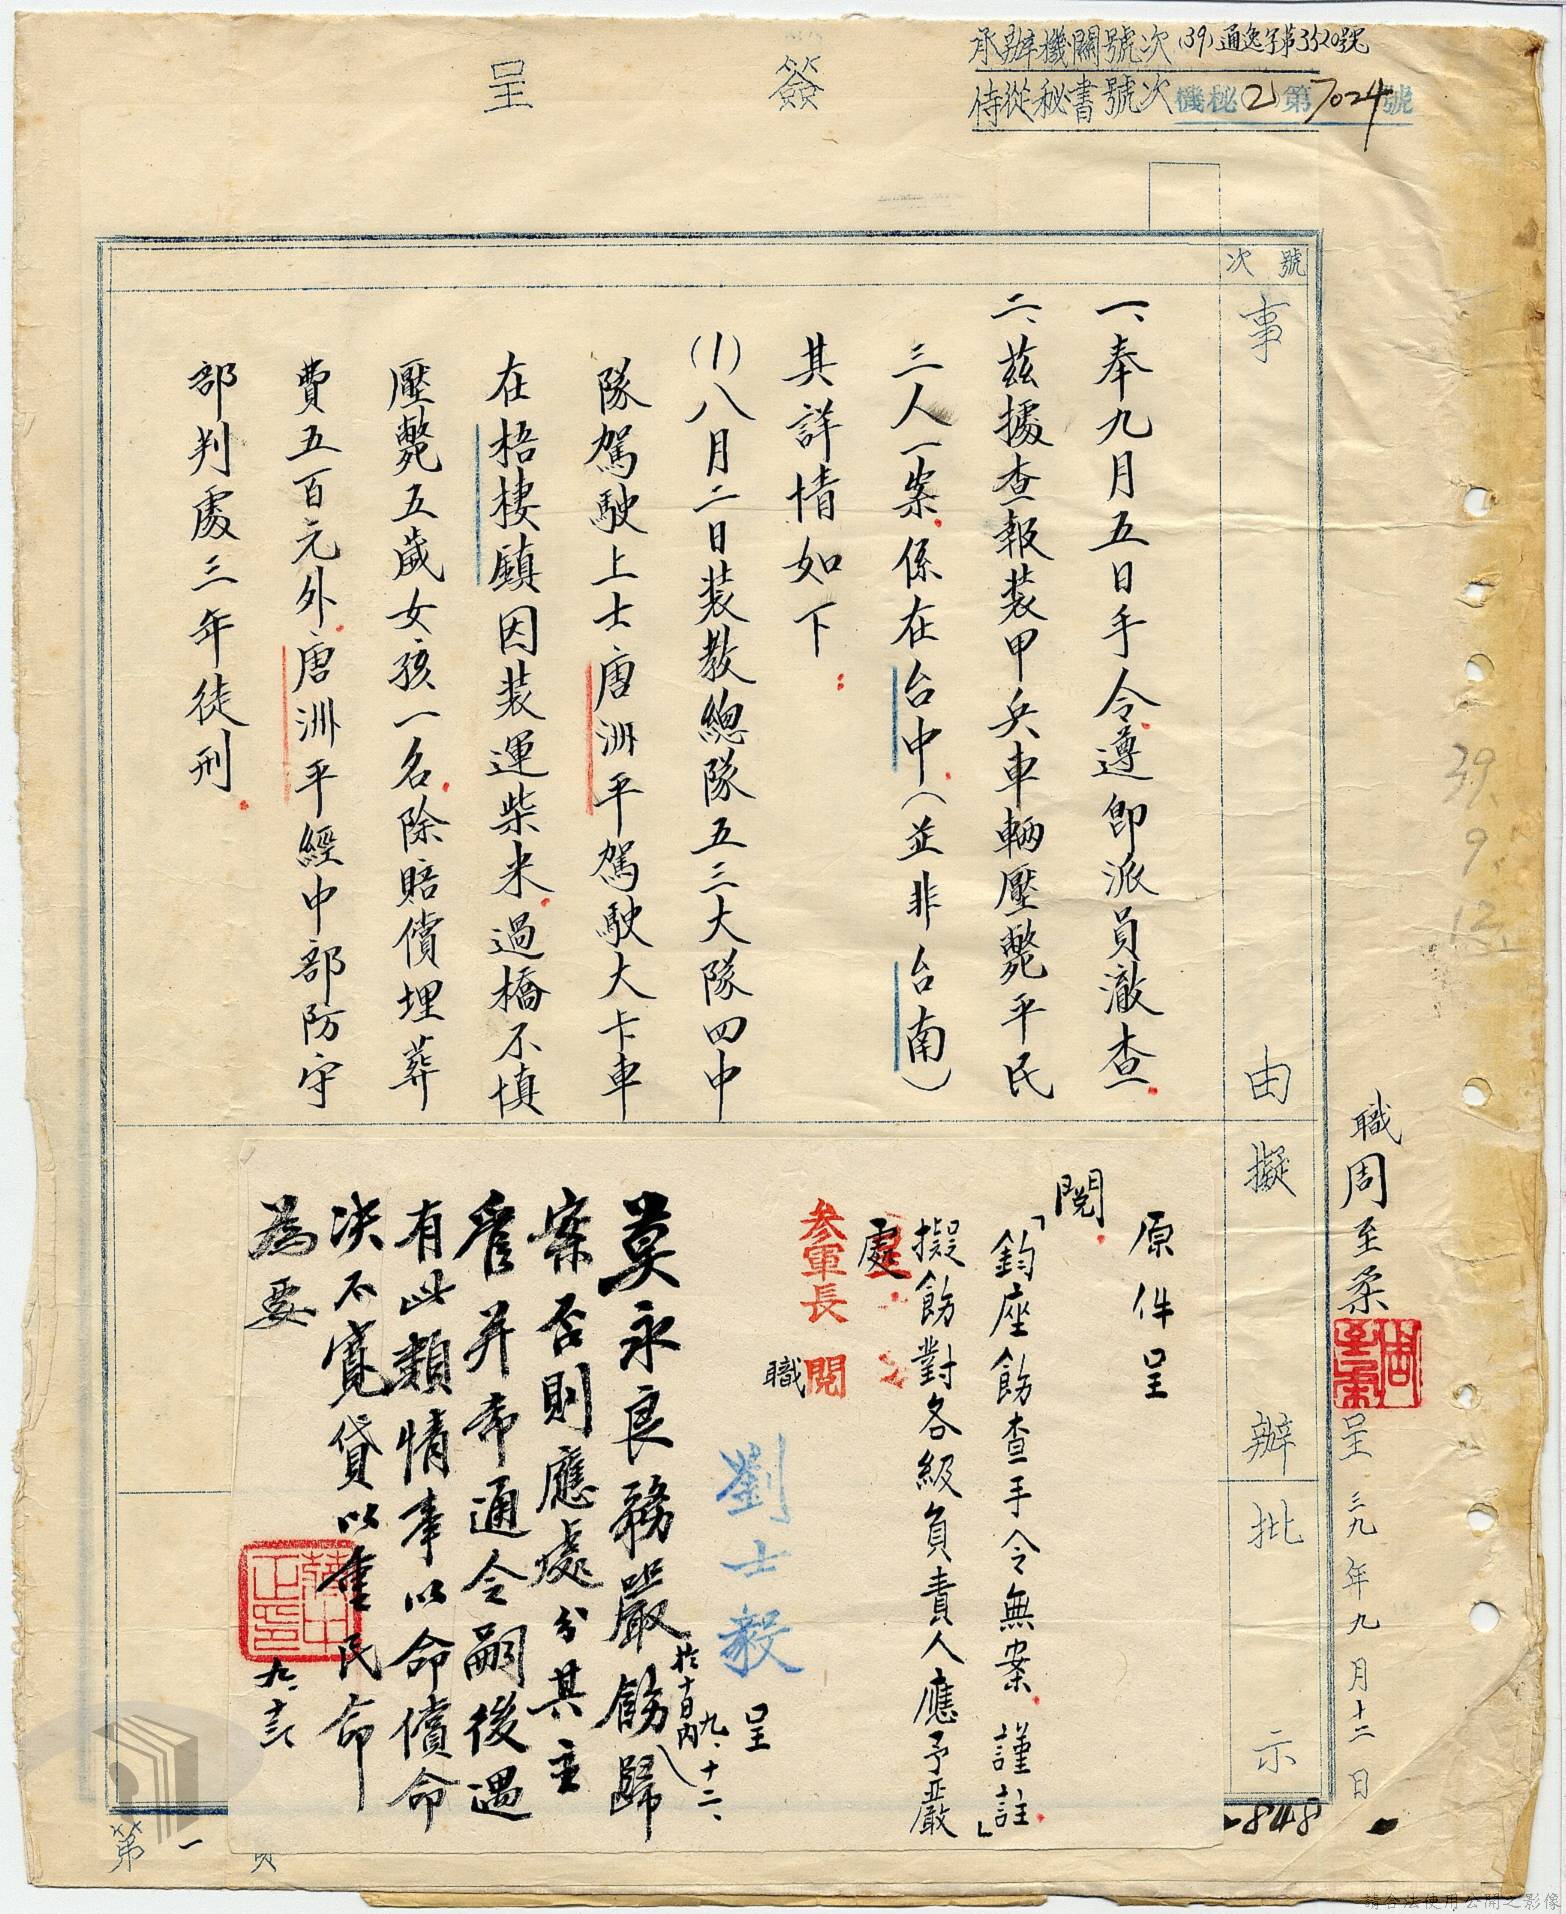 簽呈
承辦機關號次(39)通逸字第3520號
侍從秘書號次機秘(2)第7024號
號次
事由
擬辦
批示
職周至柔呈三九年九月十二日
一、奉九月五日手令遵即派員澈查
二、茲據查報裝甲兵車輛壓斃平民
三人一案係在台中(並非台南)
其詳情如下:
(1)八月二日裝教總隊五三大隊四中
隊駕駛上士唐洲平駕駛大卡車
在梧棲鎮因裝運柴米過橋不慎
壓斃五歲女孩一名除賠償埋葬
費五百元外唐洲平經中部防守
部判處三年徒刑
原件呈
閱
「鈞座飭查手令無案謹註」
擬飭對各級負責人應予嚴
處
參軍長閱
職劉士毅呈
九、十二、
莫永良務嚴飭歸
於十日內
案否則應處分其主
官并希通令嗣後遇
有此類情事以命償命
決不寬貸以重民命
為要
九、十三
39.9.13
第一頁
848
請合法使用公開之影像